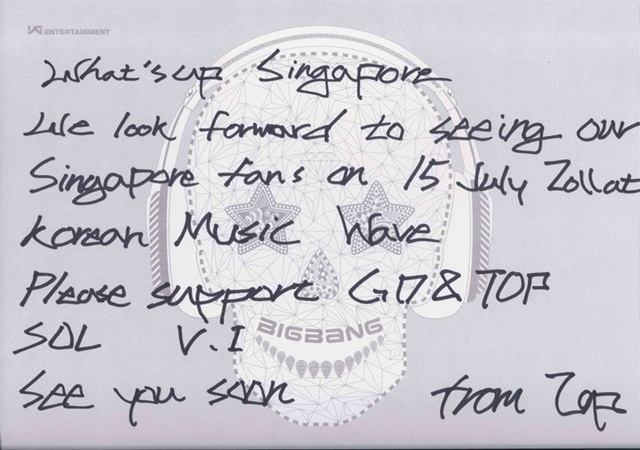 YG ENTERTAINMENT
What's up Singapore
We look forward to seeing our
Singapore fans on 15 July 2011 at
Korean Music Wave
Please support GD&TOP
SOL V.I
BIGBANG
See you soon from Top